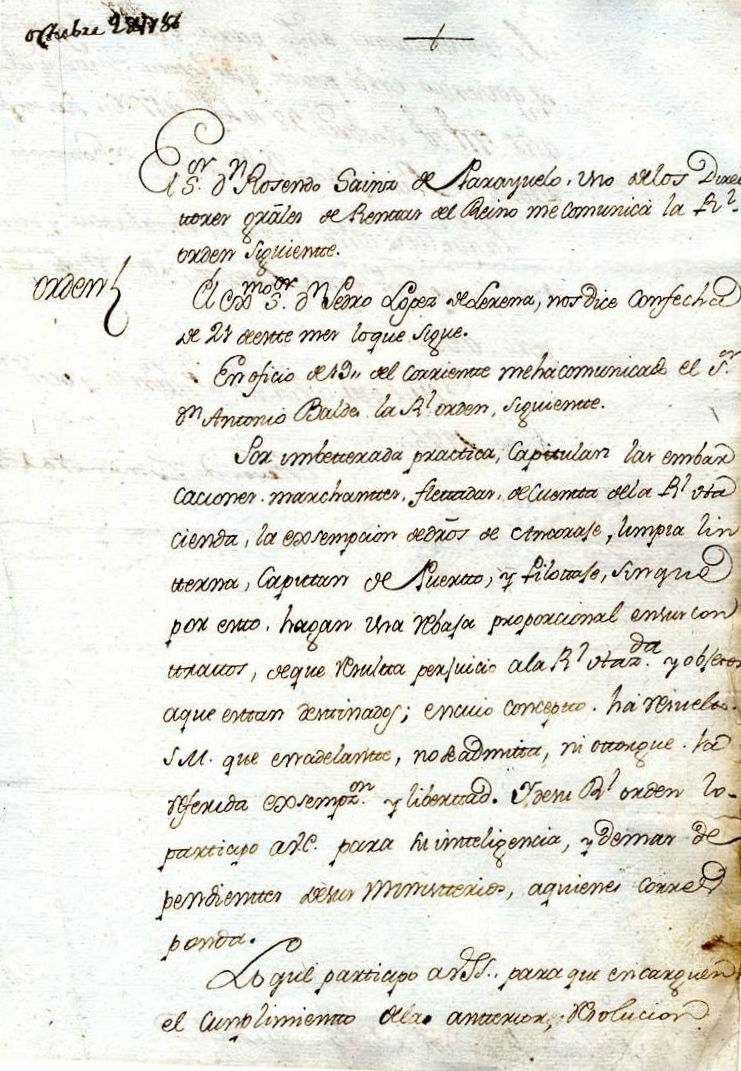 octubre 28 // 86
El S.or D.n Rosendo Sainz de Parayuelo, Uno delos Direc
ttores grāles de Renttas del Reino me comunica la R.l
orden siguientte.
orden
El Exmo S.or D.n Pedro Lopez de Lerena, nos dice Confecha
de 21 deestte mes loque sigue.
En oficio de 19,, del Corrientte mehá comunicado el S.or
D.n Antonio Baldes la R.l orden, siguientte.
Por imbetterada practica, Capittulan las embar
caciones. marchanttes, flettadas, de Cuentta dela R.l Ha
cienda, la exsempcion dedrōs de Ancorase, limpia lin
tterna, Capittan de Puertto, y Pilottase, sin que
por estto. hagan Una rebaja proporcional ensus con
ttrattos, deque resultta perjuicio ala R.l Haz.da y obsetos
aque esttan desttinados; en cuio Conceptto. há resuelto.
S.M. que en adelantte, no se admitta, ni ottorgue. la
referida exsempz.on y liberttad. Y desu R.l orden lo-
partticipo a V.E. para su intteligencia, y demas de
pendienttes desus Ministterios, a quienes Corres
ponda.
Lo que partticipo a VSS.. para que encarguen
el Cumplimientto dela antterior, resolucion